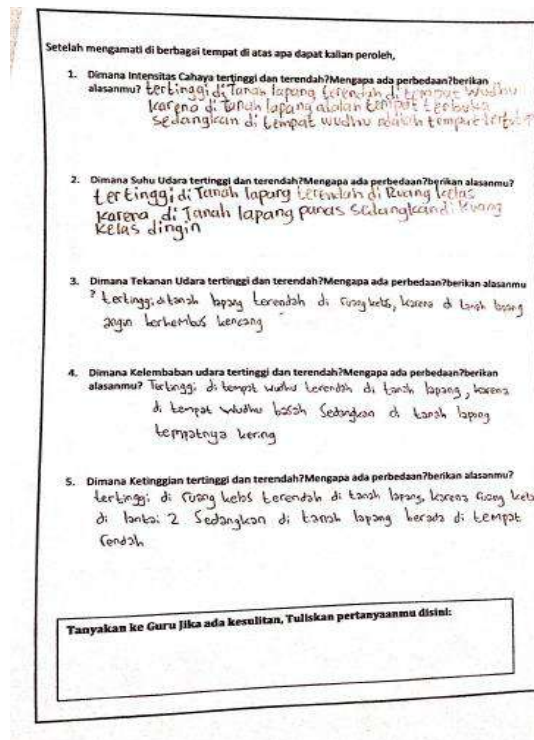 Setelah mengamati di berbagai tempat di atas apa dapat kalian peroleh,
1. Dimana Intensitas Cahaya tertinggi dan terendah?Mengapa ada perbedaan?berikan
alasanmu? tertinggi di Tanah lapang terendah di tempat wudhu
karena di Tanah lapang adalah tempat terbuka
sedangkan di tempat wudhu adalah tempat tertutup
2. Dimana Suhu Udara tertinggi dan terendah?Mengapa ada perbedaan?berikan alasanmu?
tertinggi di Tanah lapang terendah di Ruang kelas
karena di Tanah lapang panas sedangkan di Ruang
kelas dingin
3. Dimana Tekanan Udara tertinggi dan terendah?Mengapa ada perbedaan?berikan alasanmu
? tertinggi di tanah lapang terendah di ruang kelas, karena di tanah lapang
angin berhembus kencang
4. Dimana Kelembaban udara tertinggi dan terendah?Mengapa ada perbedaan?berikan
alasanmu? Tertinggi di tempat wudhu terendah di tanah lapang, karena
di tempat wudhu basah Sedangkan di tanah lapang
tempatnya kering
5. Dimana Ketinggian tertinggi dan terendah?Mengapa ada perbedaan?berikan alasanmu?
tertinggi di ruang kelas terendah di tanah lapang, karena ruang kelas
di lantai 2 Sedangkan di tanah lapang berada di tempat
rendah
Tanyakan ke Guru Jika ada kesulitan, Tuliskan pertanyaanmu disini: